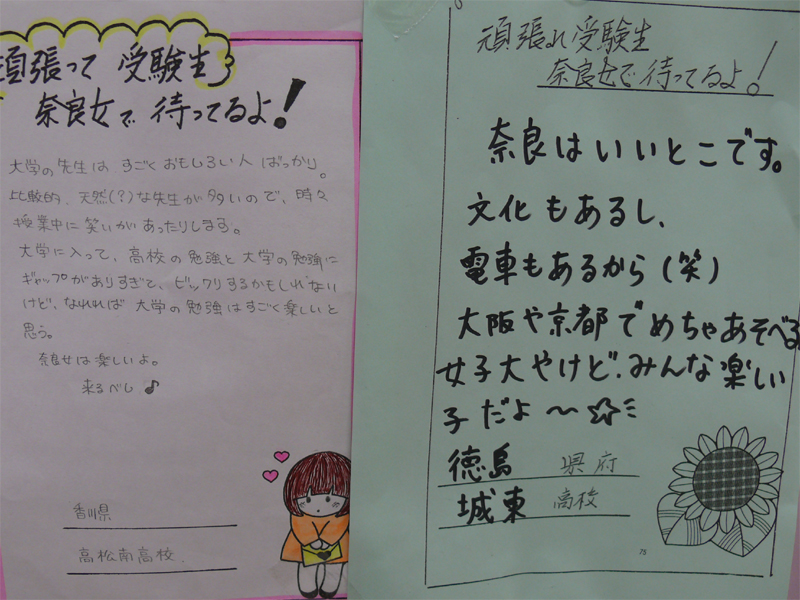 頑張って 受験生
奈良女で 待ってるよ！
大学の先生は すごくおもしろい人 ばっかり。
比較的、天然(？)な先生が 多いので、時々
授業中に 笑いがあったりします。
大学に入って、高校の勉強と 大学の勉強に
ギャップがありすぎて、ビックリするかもしれないけど、なれれば 大学の勉強はすごく楽しいと
思う。
奈良女は楽しいよ。
来るべし♪
香川県
高松南高校
頑張れ 受験生
奈良女で 待ってるよ！
奈良はいいとこです。
文化もあるし、
電車もあるから（笑）
大阪や京都でめちゃあそべる
女子大やけど、みんな楽しい
子だよ〜☆ミ
徳島 県府
城東 高校
75